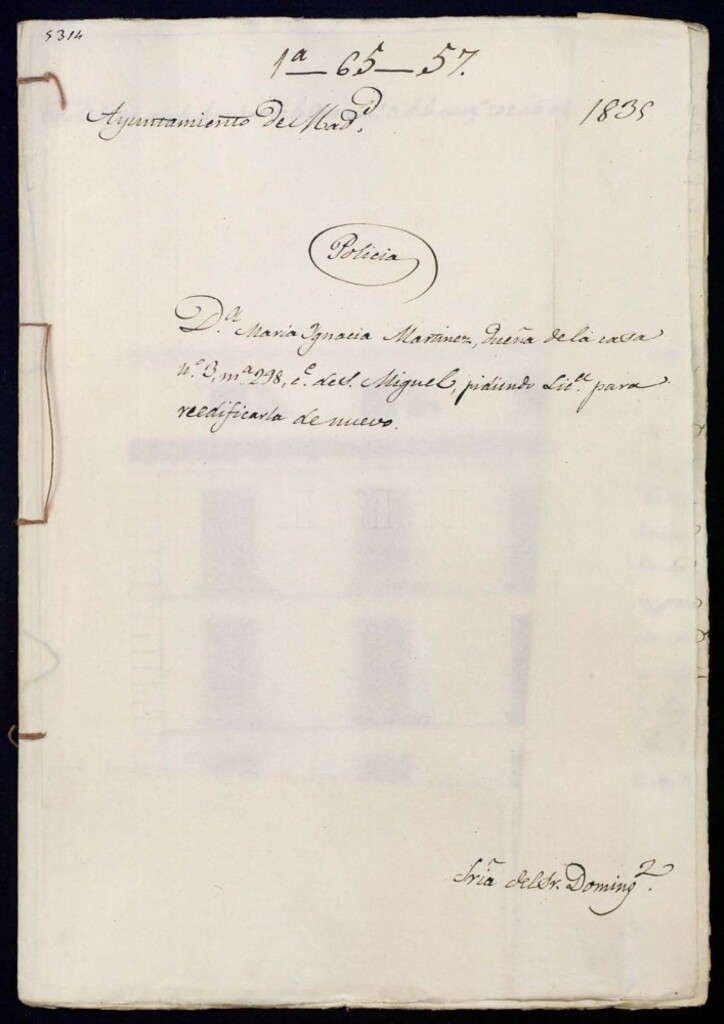 5314
1ª—65—57.
Ayuntamiento de Madd. 1835
Policia
D.ª Maria Ygnacia Martinez, dueña de la casa
n.º 3, m.ª 298, c.e de S. Miguel, pidiendo Lic.ª para
reedificarla de nuevo.
Sria del Sr. Doming.z